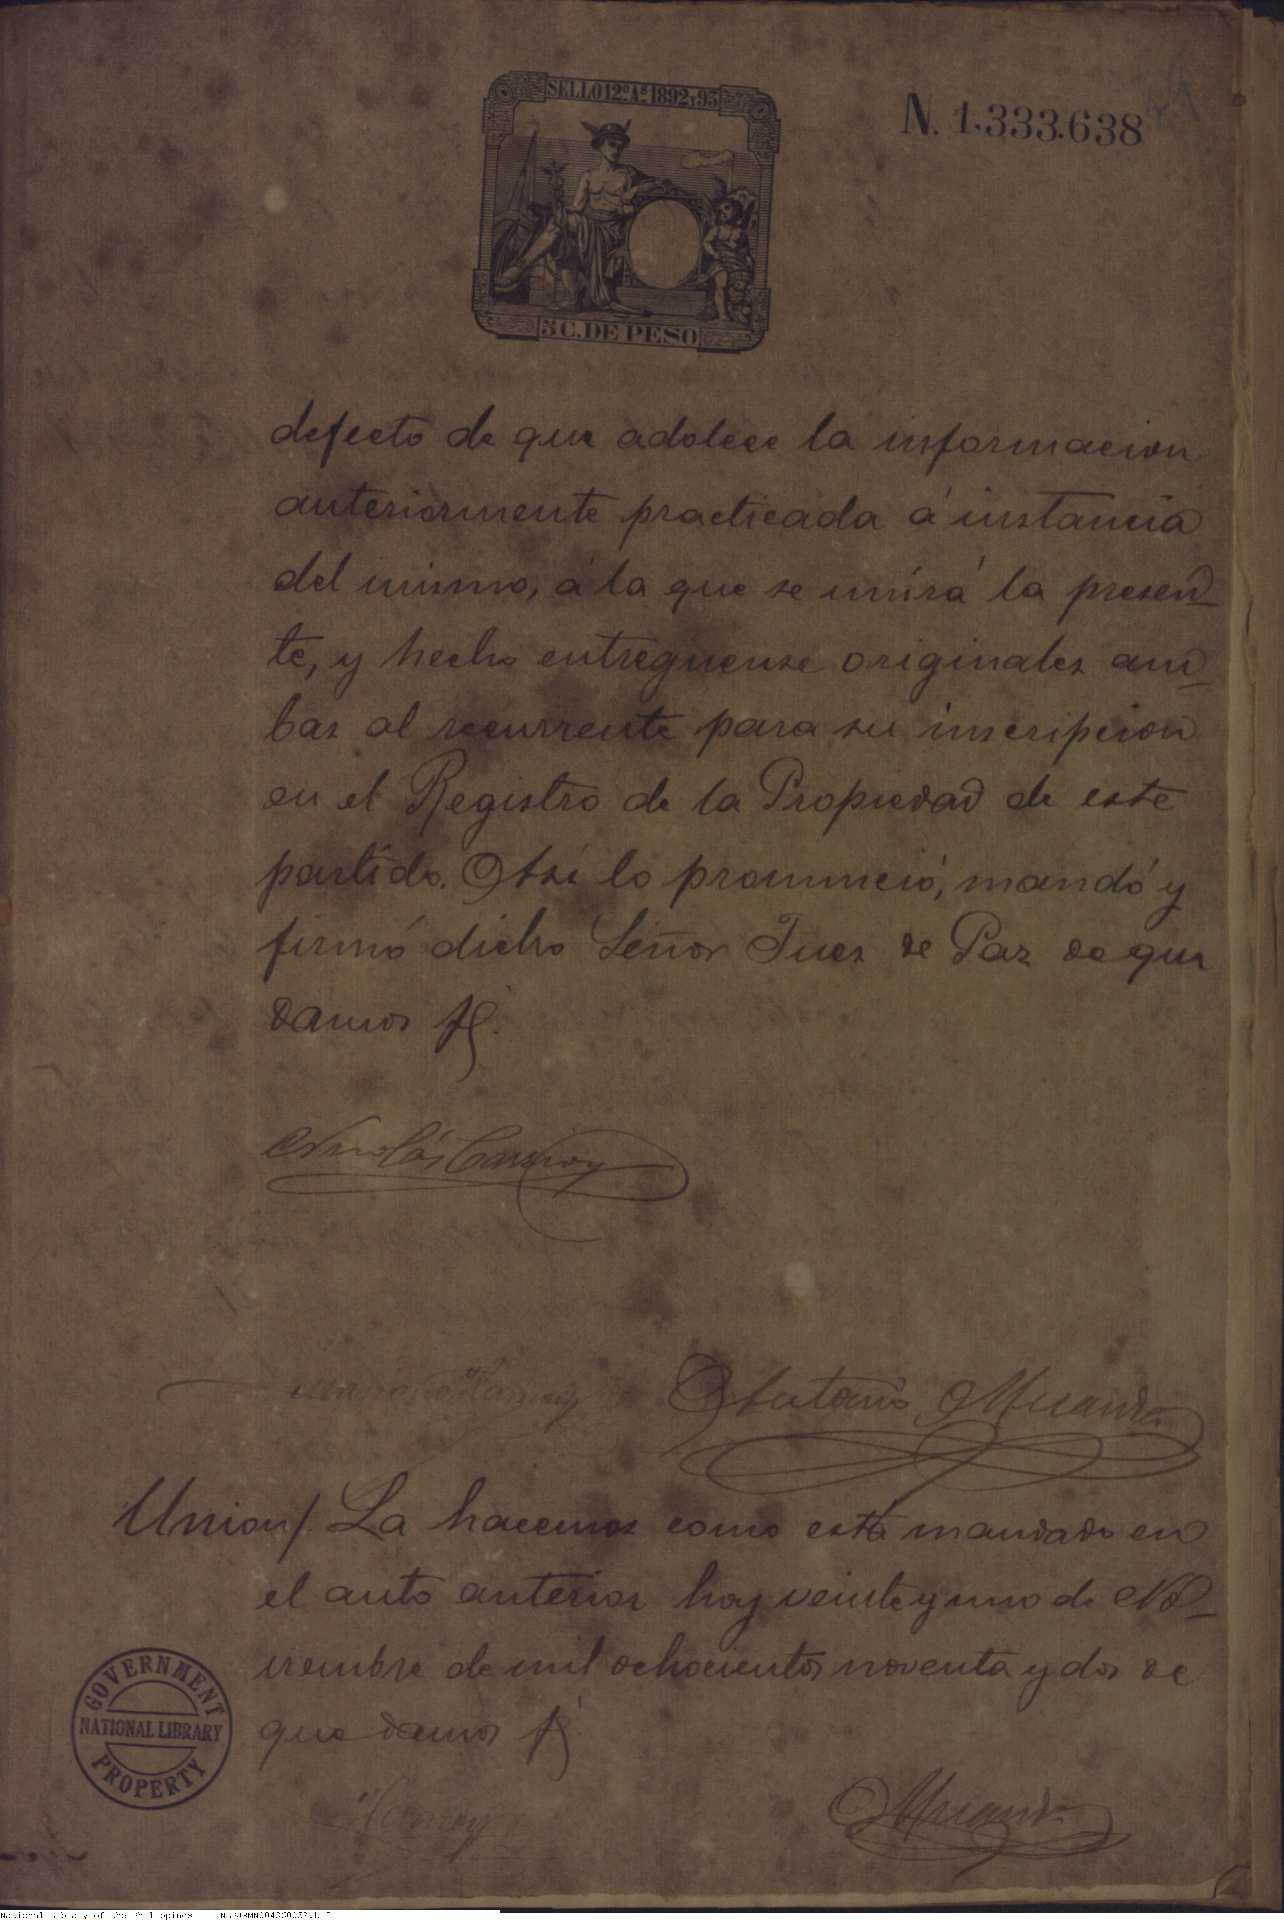 SELLO 12º Aˢ 1892 y 93
N. 1.333.638
5 C. DE PESO
defecto de que adolece la informacion
anteriormente practicada á instancia
del mismo, á la que se unirá la presen-
te, y hecho entreguense originales am-
bas al recurrente para su inscripcion
en el Registro de la Propiedad de este
partido. Así lo pronunció, mandó y
firmó dicho Señor Juez de Paz de que
damos fé.
Nicolás
Antonio Miranda
Union/. La hacemos como está mandado en
el auto anterior hoy veinte y uno de No-
viembre de mil ochocientos noventa y dos de
que damos fé.
Miranda
GOVERNMENT
NATIONAL LIBRARY
PROPERTY
National Library of the Philippines